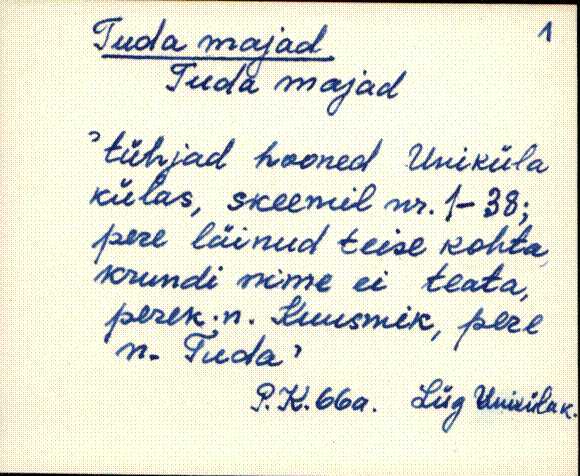 1
Tuda majad
Tuda majad
'tühjad hooned Uniküla
külas, skeemil nr. 1-38;
pere läinud teise kohta,
krundi nime ei teata,
perek. n. Kuusmik, pere
n. Tuda'
P.K. 66a. Lüg Uniküla k.